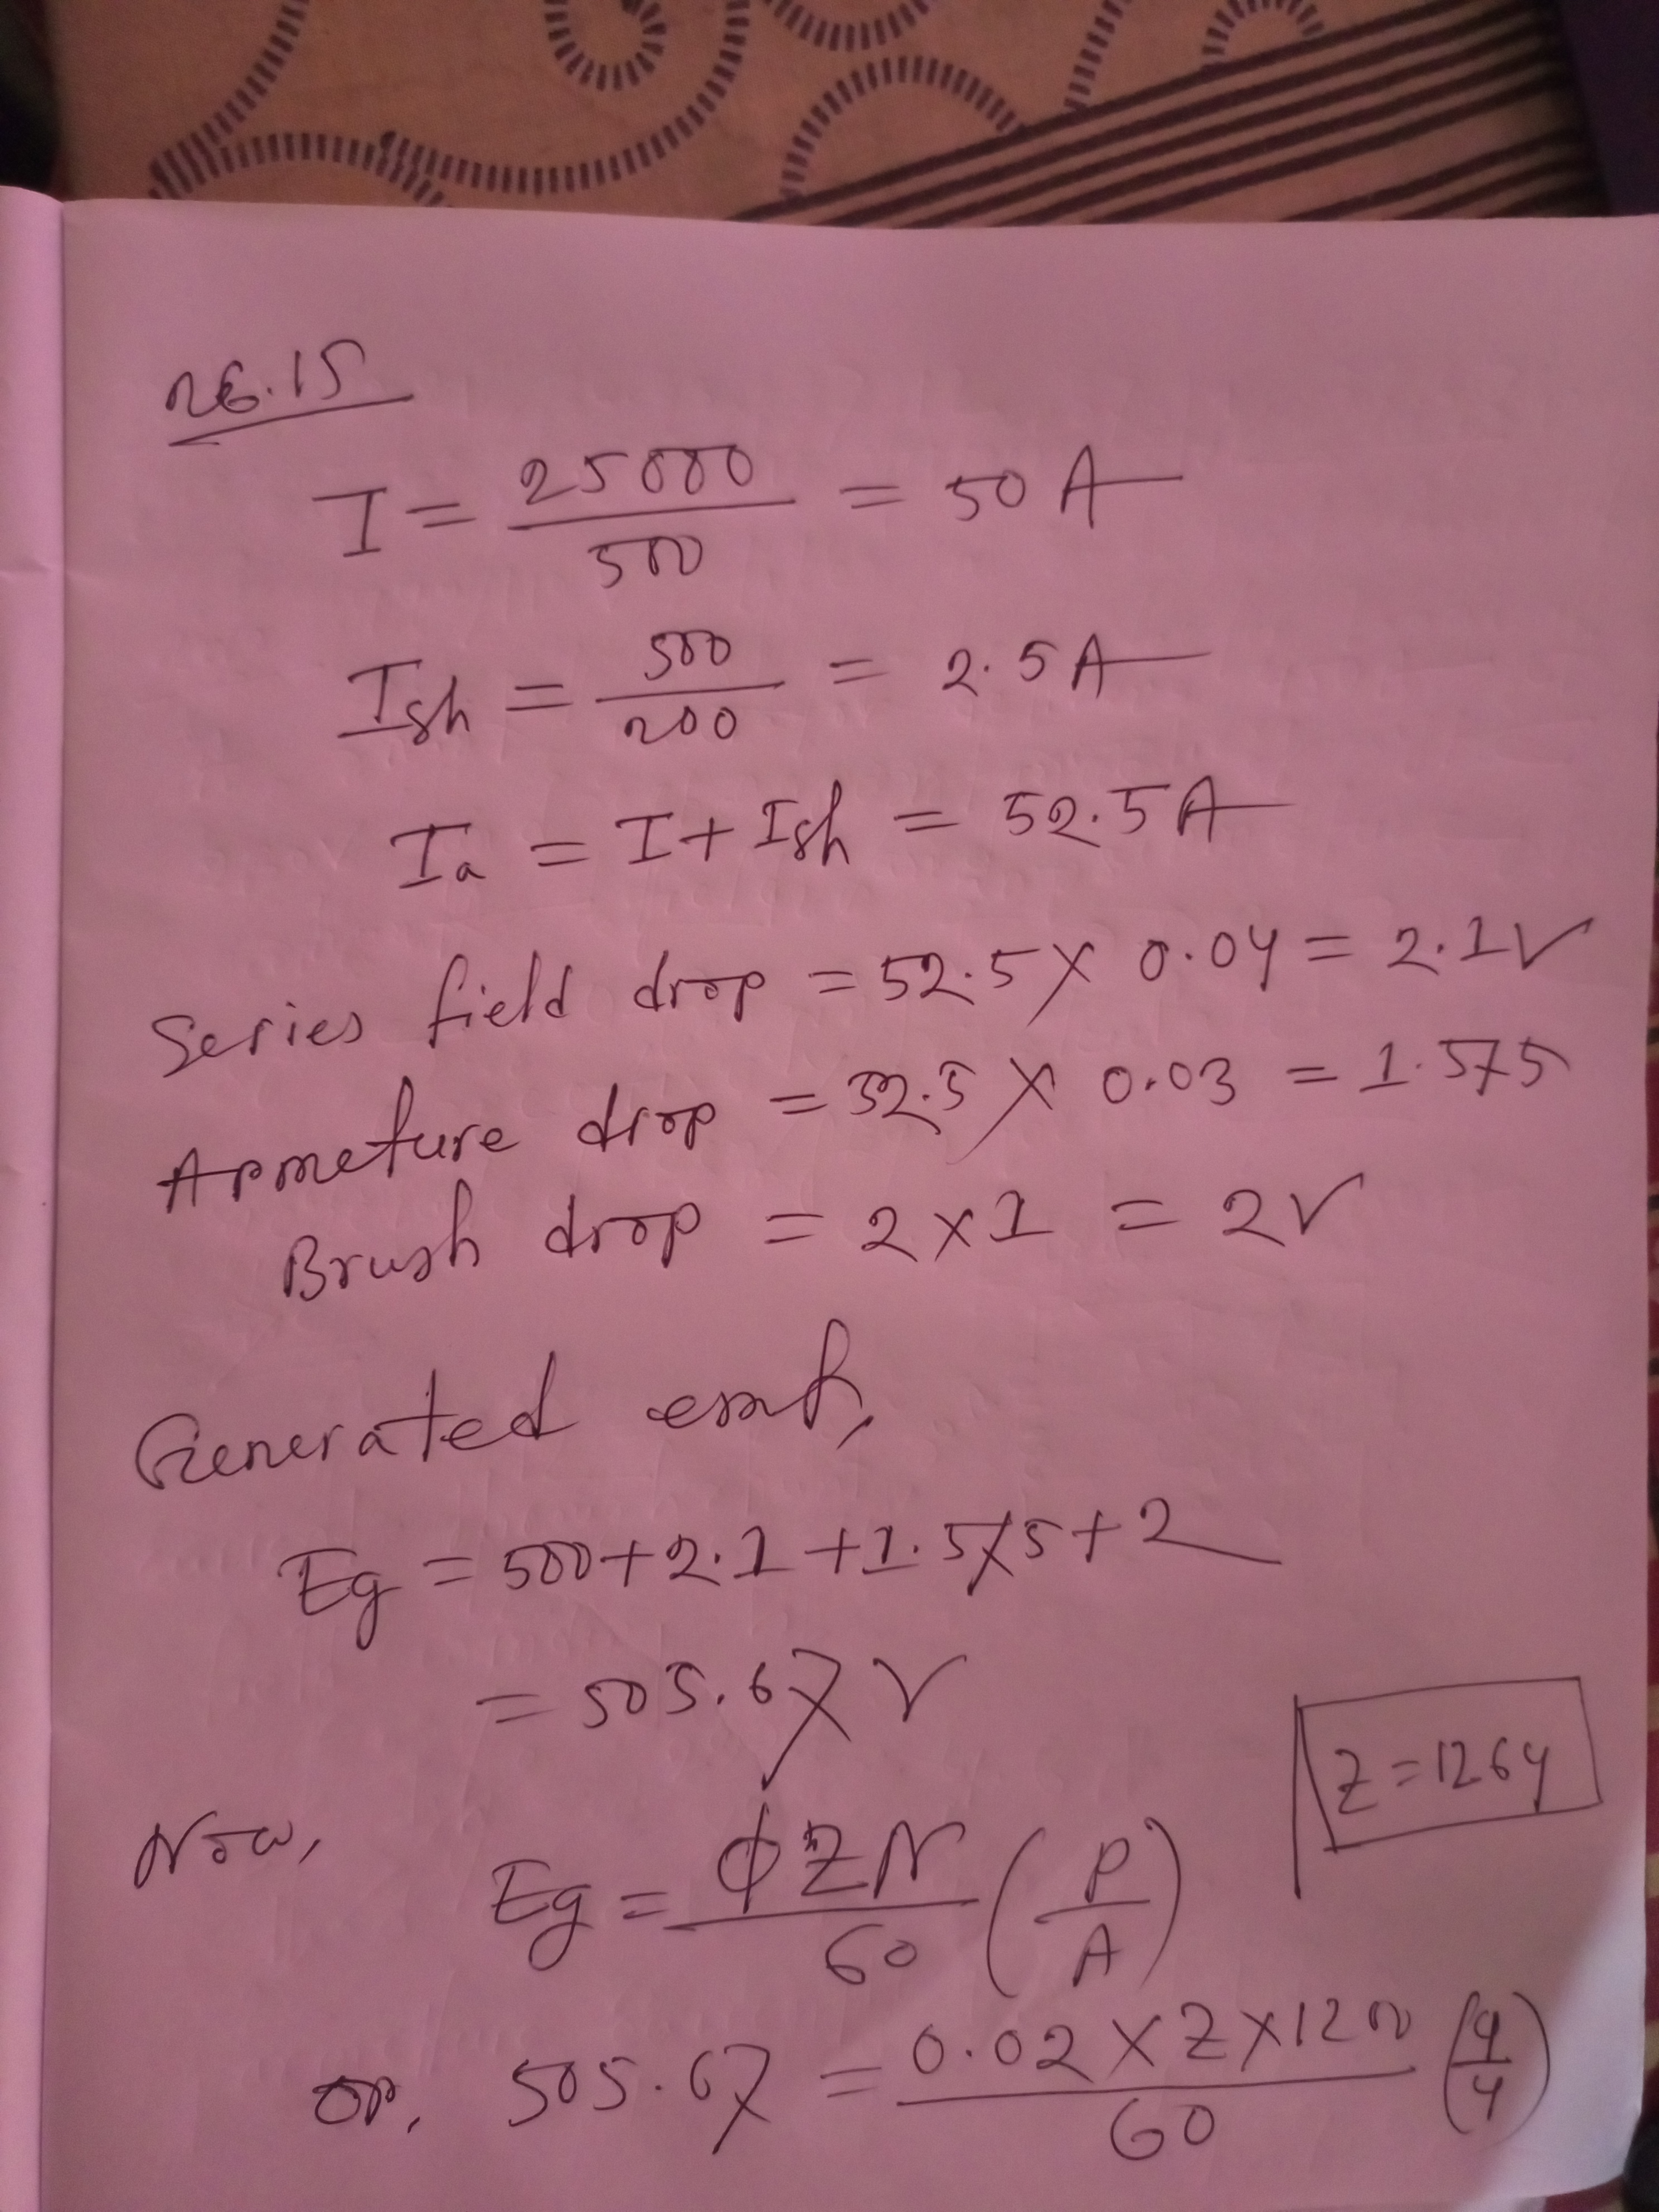 26.15
I = 25000/500 = 50 A
Ish = 500/200 = 2.5 A
Ia = I + Ish = 52.5 A
Series field drop = 52.5 × 0.04 = 2.1 V
Armeture drop = 52.5 × 0.03 = 1.575
Brush drop = 2 × 1 = 2 V
Generated emf,
Eg = 500 + 2.1 + 1.575 + 2
= 505.67 V
Z = 1264
Now,
Eg = ϕZN/60 (P/A)
or, 505.67 = 0.02 × Z × 1200/60 (4/4)